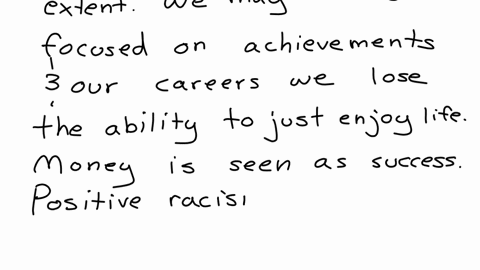 extent. We may
focused on achievements
3 our careers we lose
the ability to just enjoy life.
Money is seen as success.
Positive